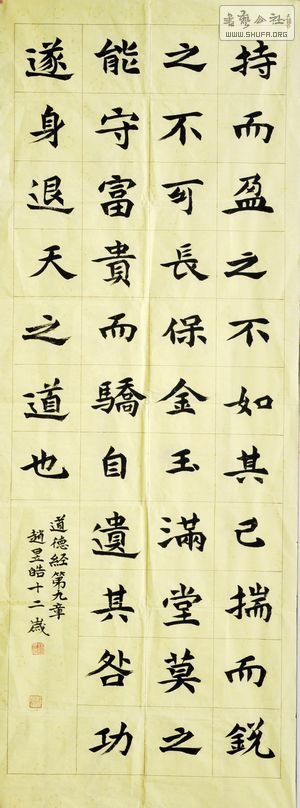 持而盈之不如其已揣而鋭
之不可長保金玉滿堂莫之
能守富貴而驕自遺其咎功
遂身退天之道也
道德經第九章
趙昱皓十二歲
書藝公社
WWW.SHUFA.ORG